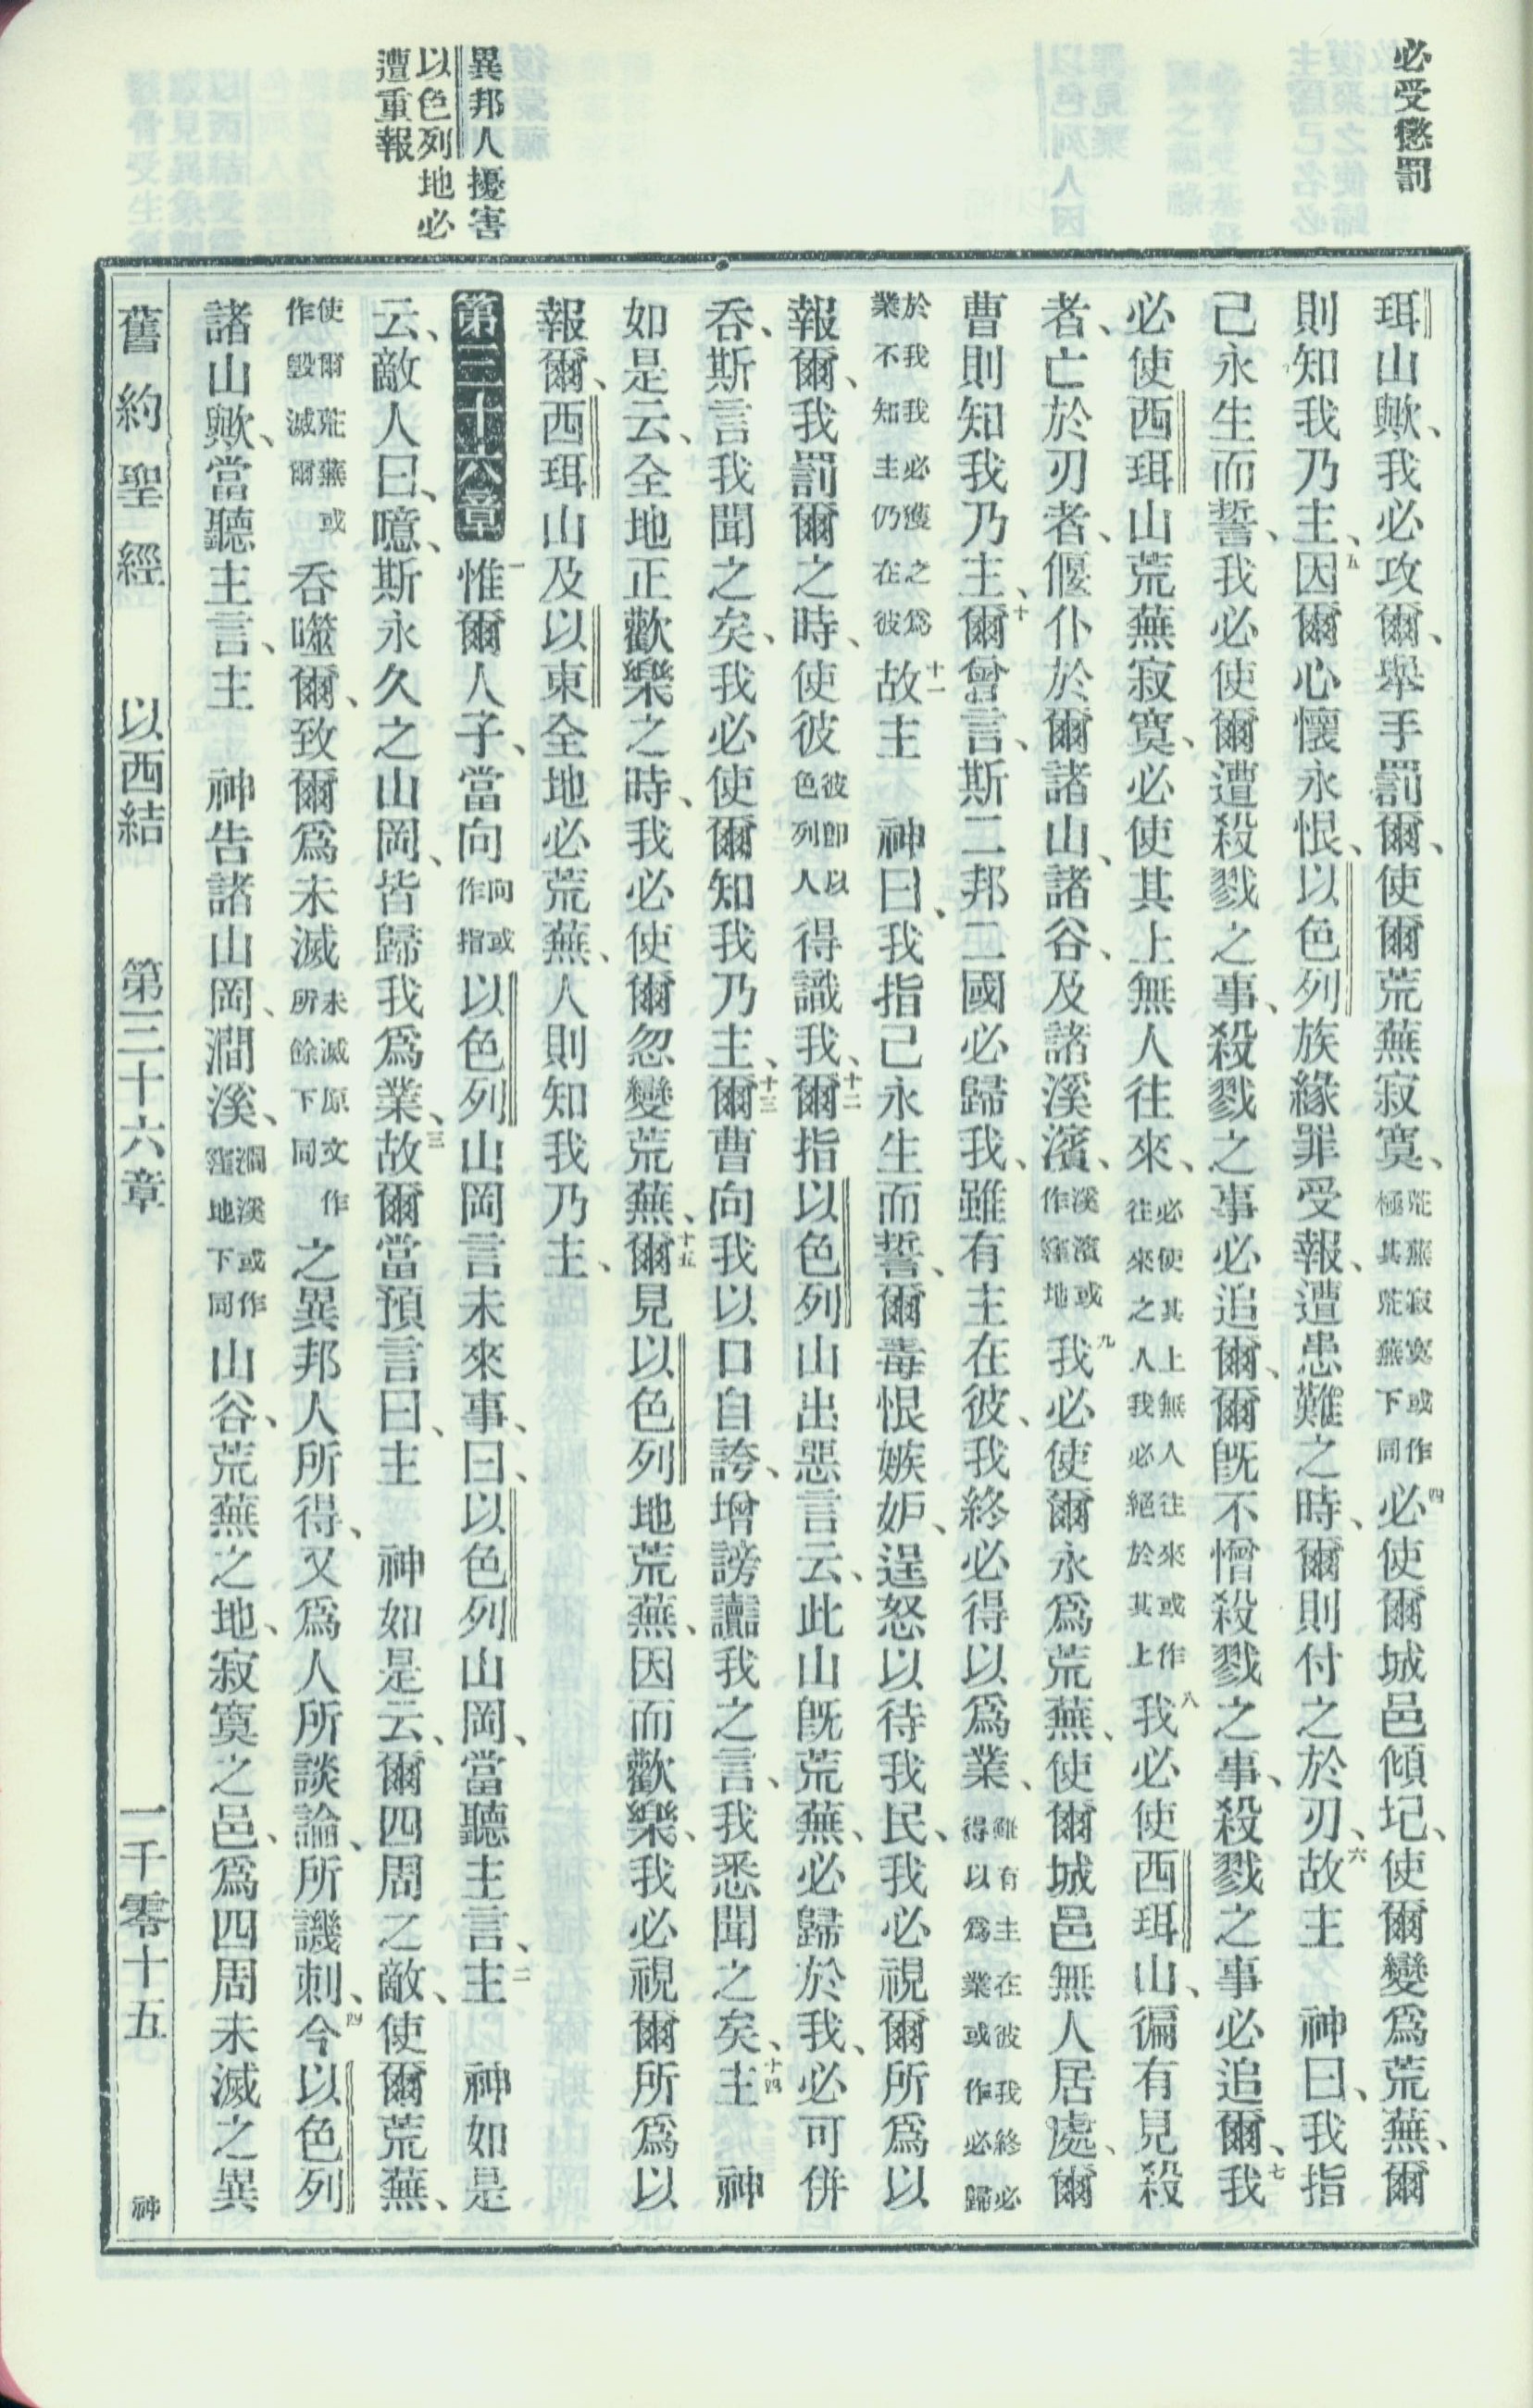 必受懲罰
異邦人擾害
以色列地必
遭重報
珥山歟、我必攻爾、舉手罰爾、使爾荒蕪寂寞、荒蕪寂寞或作極其荒蕪下同四必使爾城邑傾圮、使爾變爲荒蕪、爾
則知我乃主、五因爾心懷永恨、以色列族緣罪受報、遭患難之時、爾則付之於刃、六故主　神曰、我指
己永生而誓、我必使爾遭殺戮之事、殺戮之事必追爾、爾旣不憎殺戮之事、殺戮之事必追爾、七我
必使西珥山荒蕪寂寞、必使其上無人往來、必使其上無人往來或作往來之人我必絕於其上八我必使西珥山、徧有見殺
者、亡於刃者、偃仆於爾諸山、諸谷、及諸溪濱、溪濱或作窪地九我必使爾永爲荒蕪、使爾城邑無人居處、爾
曹則知我乃主、十爾曾言、斯二邦二國必歸我、雖有主在彼、我終必得以爲業、雖有主在彼我終必得以爲業或作必歸
於我我必獲之爲業不知主仍在彼十一故主　神曰、我指己永生而誓、爾毒恨嫉妒、逞怒以待我民、我必視爾所爲以
報爾、我罰爾之時、使彼彼卽以色列人得識我、十二爾指以色列山出惡言云、此山旣荒蕪、必歸於我、必可併
吞、斯言我聞之矣、我必使爾知我乃主、十三爾曹向我以口自誇、增謗讟我之言、我悉聞之矣、十四主　神
如是云、全地正歡樂之時、我必使爾忽變荒蕪、十五爾見以色列地荒蕪、因而歡樂、我必視爾所爲以
報爾、西珥山及以東全地必荒蕪、人則知我乃主、
第三十六章 一惟爾人子、當向向或作指以色列山岡言未來事、曰、以色列山岡、當聽主言、二主　神如是
云、敵人曰、噫、斯永久之山岡、皆歸我爲業、三故爾當預言曰、主　神如是云、爾四周之敵、使爾荒蕪、
使爾荒蕪或作毀滅爾吞噬爾、致爾爲未滅未滅原文作所餘下同之異邦人所得、又爲人所談論、所譏刺、四今以色列
諸山歟、當聽主言、主　神告諸山岡、澗溪、澗溪或作窪地下同山谷、荒蕪之地、寂寞之邑、爲四周未滅之異
舊約聖經　以西結　第三十六章　一千零十五　神